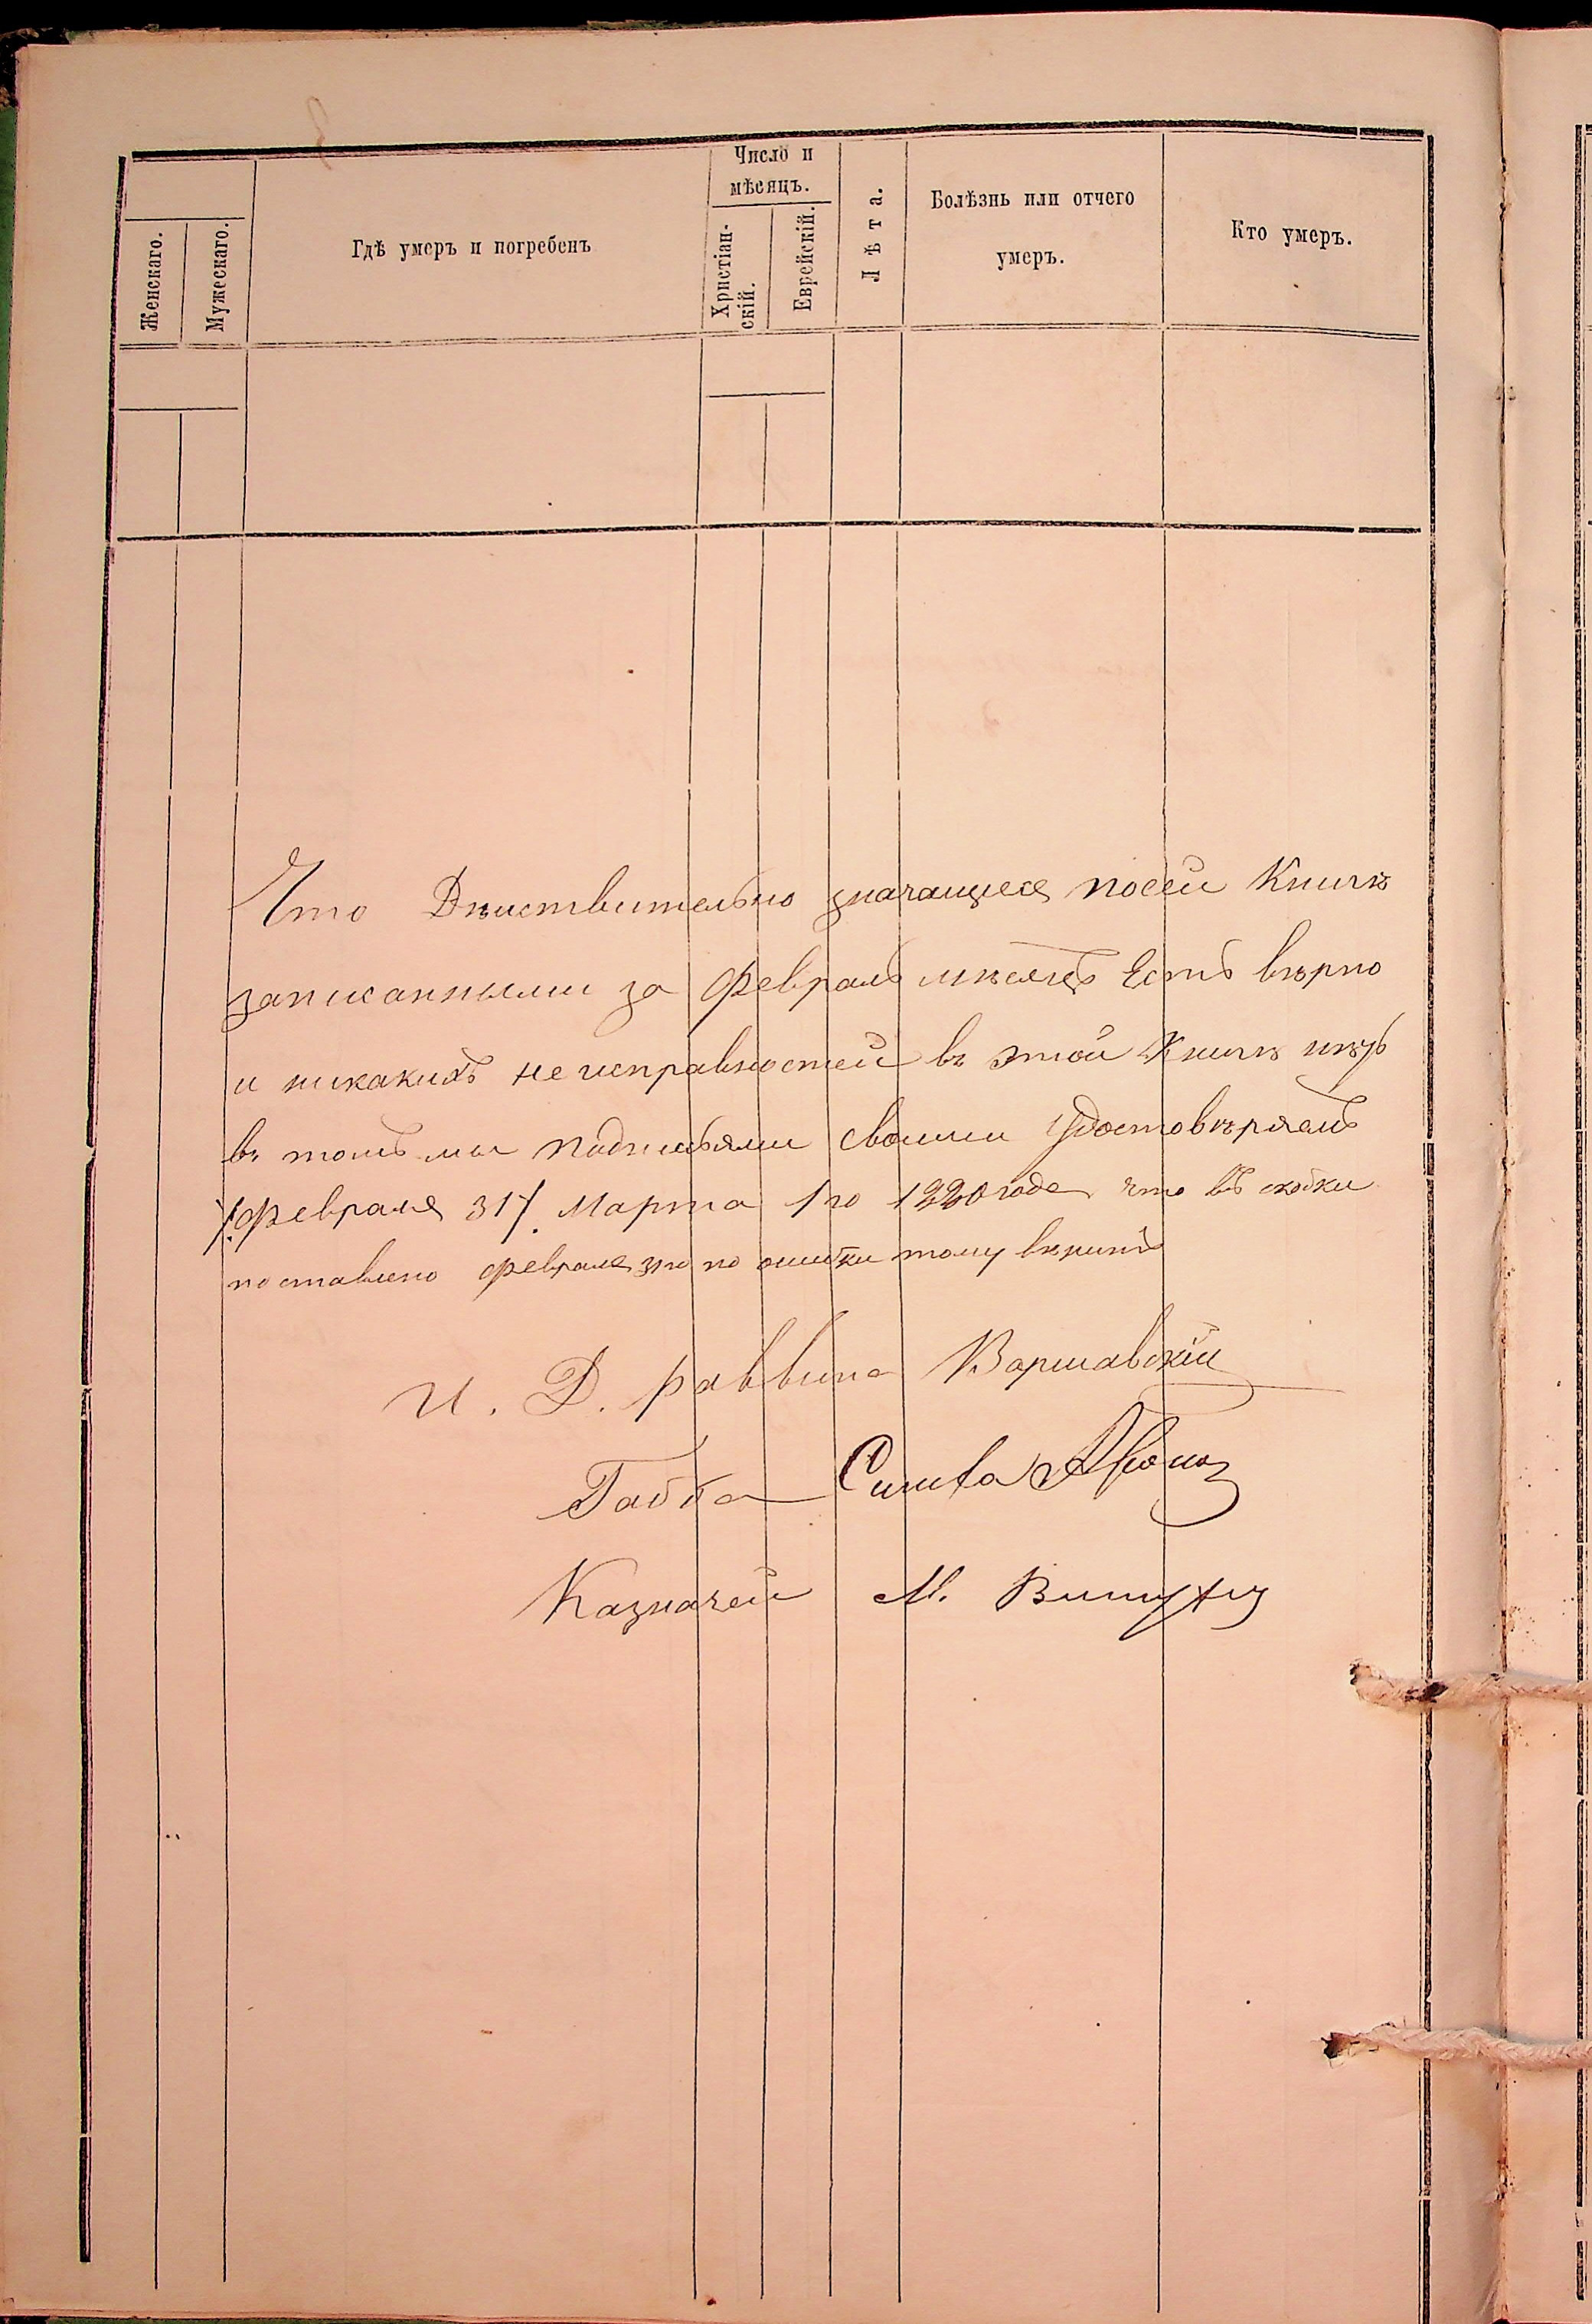 Женскаго.
Мужескаго.
Гдѣ умеръ и погребенъ
Число и
мѣсяцъ.
Христіан-
скій.
Еврейскій.
Лѣта.
Болѣзнь или отчего
умеръ.
Кто умеръ.
Что Дѣиствительно значащиеся посеи Книгѣ
записанными за Февраль мѣсяцъ Естъ вѣрно
и никакихъ неисправностей въ этой Книгѣ нѣтъ
въ томъ мы подписями своими Удостовѣряемъ
/:Февраля 31/. Марта 1го 1880 года что въ скобки
поставлено Февраля 31го по ошибки тому
И. Д. раввина Варшавскій
Габба
Казначей М.